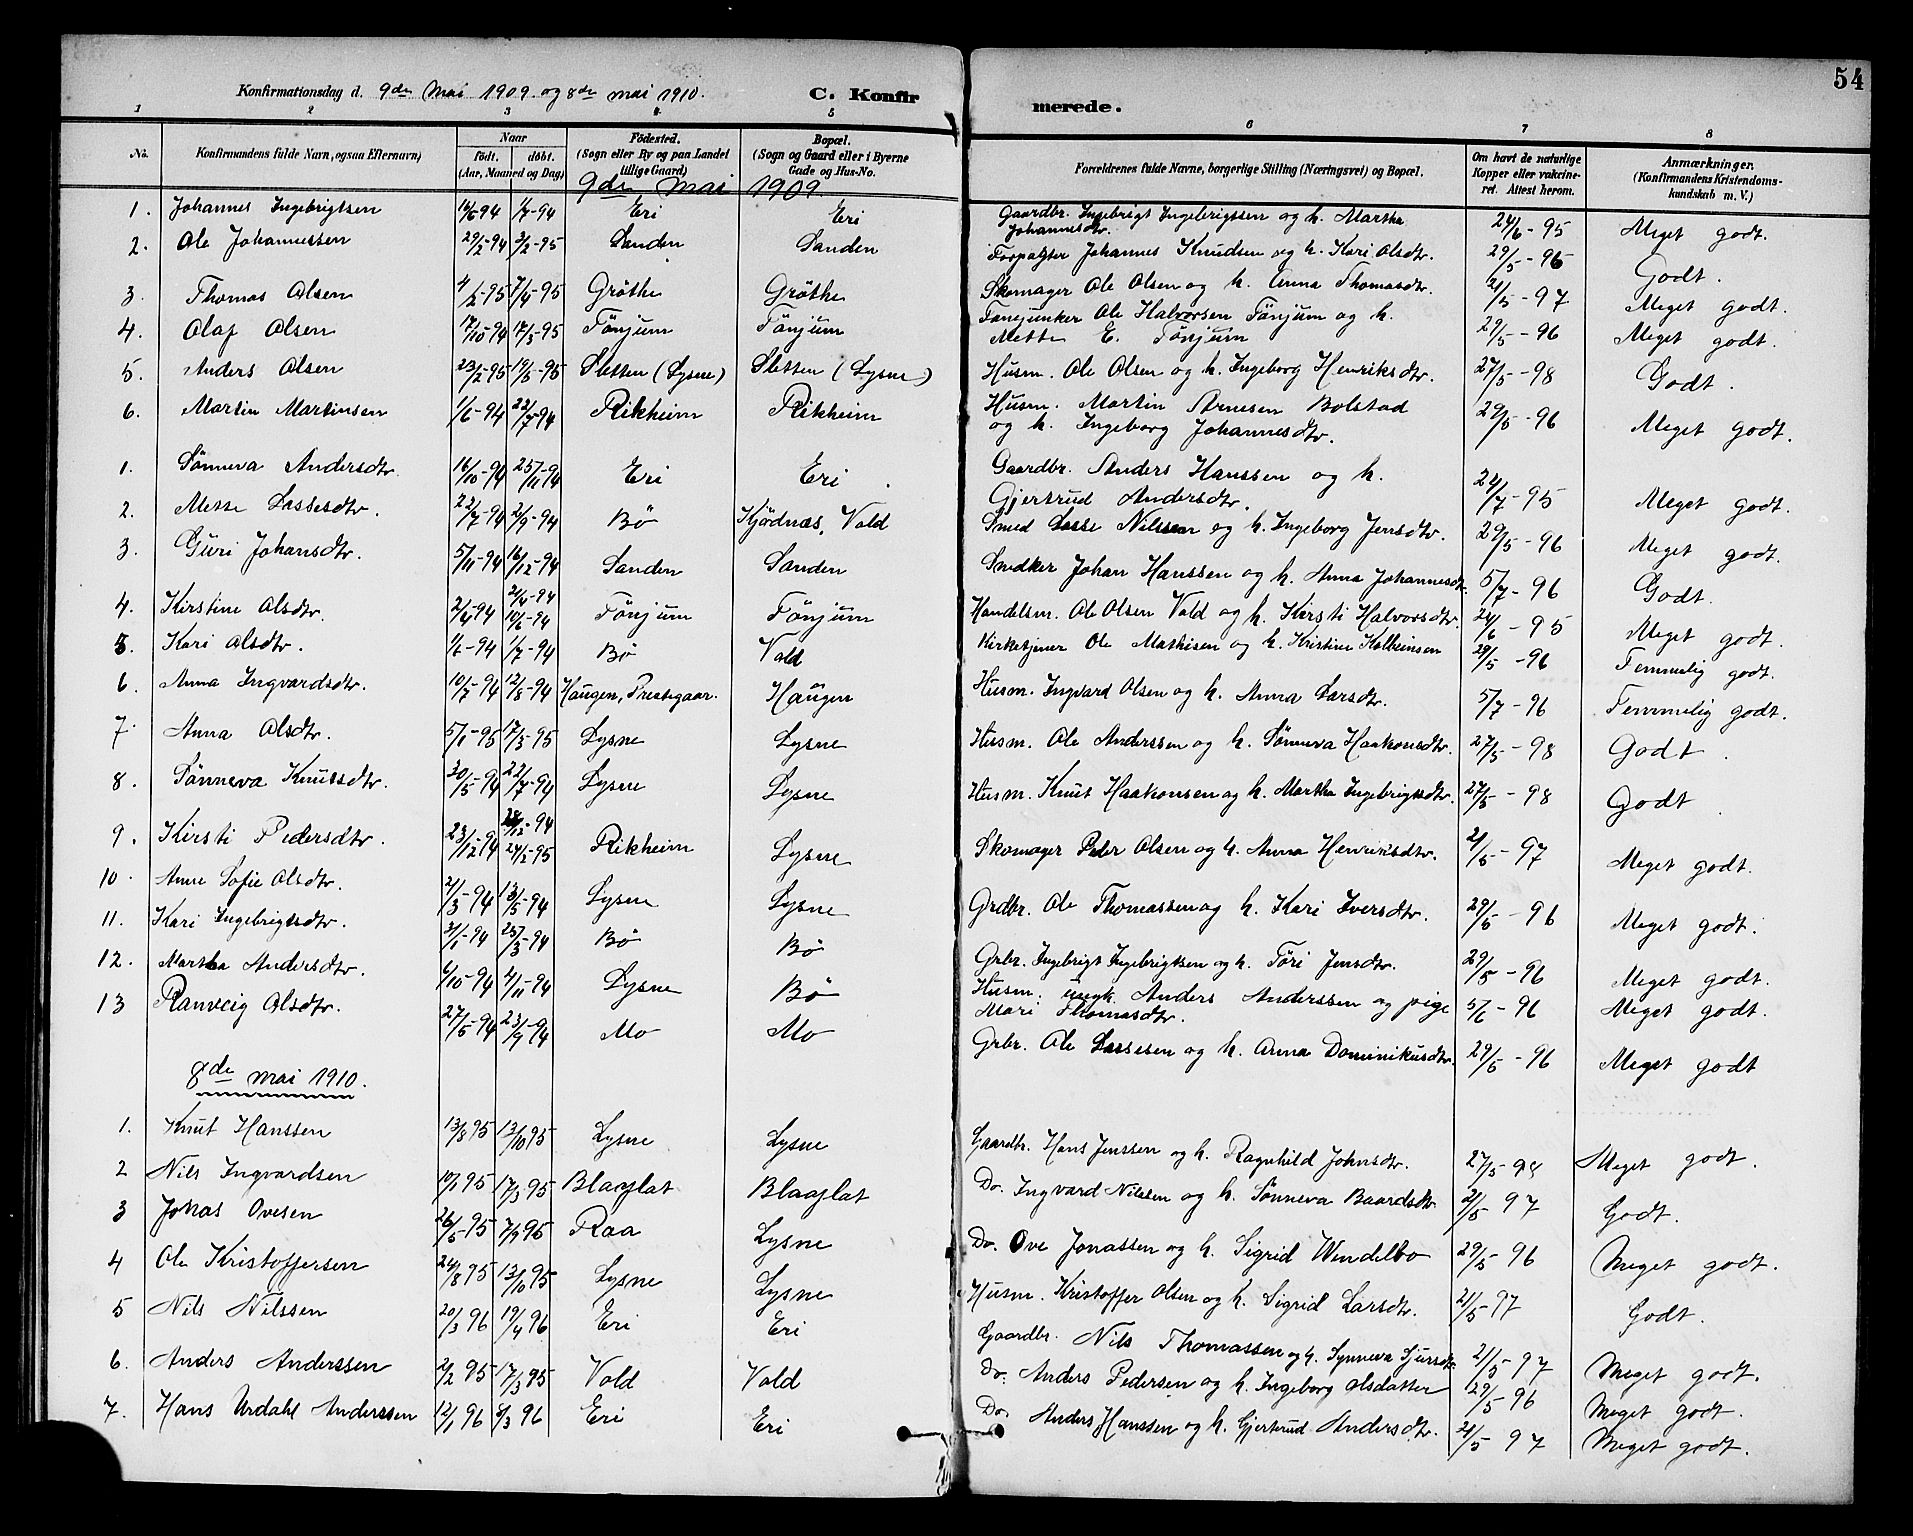 54
Konfirmationsdag d. 9de Mai 1909 og 8de mai 1910. C. Konfirmerede.
1 2 3 4 5 6 7 8
No. Konfirmandens fulde Navn, ogsaa Efternavn) Naar født. døbt. (Aar, Maaned og Dag) Fødested. (Sogn eller By og paa Landet tillige Gaard) Bopæl. (Sogn og Gaard eller i Byerne Gade og Hus-No. Forældrenes fulde Navne, borgerlige Stilling (Næringsvei) og Bopæl. Om havt de naturlige Kopper eller vakcineret. Attest herom. Anmærkninger. (Konfirmandens Kristendomskundskab m. V.)
9de Mai 1909
1. Johannes Ingebrigtsen 14/6-94 1/7-94 Eri Eri Gaardbr. Ingebrigt Ingebrigtsen og h. Martha Johannesdtr. 24/6-95 Meget godt.
2. Ole Johannessen 3/2-95 Sanden Sanden Forpagter Johannes Knudsen og h. Kari Olsdtr. 29/5-96 Godt.
3. Thomas Olsen 4/2-95 7/4-95 Grøthe Grøthe Skomager Ole Olsen og h. Anna Thomasdtr. 21/5-97 Meget godt.
4. Olaf Olsen 17/10-94 17/3-95 Tønjum Tønjum Fanejunker Ole Halvorsen Tønjum og h. Mette E. Tønjum 29/5-96 Meget godt.
5. Anders Olsen 23/2-95 19/5-95 Sletten (Lysne) Sletten (Lysne) Husm. Ole Olsen og h. Ingeborg Henriksdtr. 27/5-98 Godt.
6. Martin Martinsen 1/6-94 22/7-94 Rikheim Rikheim Husm. Martin Arnesen Bolstad og h. Ingeborg Johannesdtr. 29/5-96 Meget godt.
1. Sønneva Andersdtr. 16/10-94 25/11-94 Eri Eri Gaardbr. Anders Hanssen og h. Gjertrud Andersdtr. 24/7-95 Meget godt.
2. Mette Lassesdtr. 22/7-94 2/9-94 Bø Kjødnæs, Vold Smed Lasse Nilssen og h. Ingeborg Jensdtr. 29/5-96 Meget godt.
3. Guri Johansdtr. 5/11-94 16/12-94 Sanden Sanden Snedker Johan Hanssen og h. Anna Johannesdtr. 5/7-96 Godt.
4. Kirstine Olsdtr. 2/4-94 2/4-94 10/6-94 Tønjum Tønjum Handelsm. Ole Olsen Vold og h. Kirsti Halvorsdtr. 24/6-95 Meget godt.
5. Kari Olsdtr. 1/6-94 1/7-94 Bø Vold Kirketjener Ole Mathisen og h. Kristine Kolbeinsen 29/5-96 Temmelig godt.
6. Anna Ingvardsdtr. 10/7-94 12/8-94 Haugen, Prestegaar. Haugen Husm. Ingvard Olsen og h. Anna Larsdtr. 5/7-96 Temmelig godt.
7. Anna Olsdtr. 5/1-95 17/3-95 Lysne Lysne Husm. Ole Anderssen og h. Sønneva Haakonsdtr. 27/5-98 Godt
8. Sønneva Knutsdtr. 30/5-94 22/7-94 Lysne Lysne Husm. Knut Haakonsen og h. Martha Ingebrigtsdtr. 27/5-98 Godt.
9. Kirsti Pedersdtr. 23/12-94 28/12-94 24/2-95 Rikheim Lysne Skomager Peder Olsen og h. Anna Henriksdtr. 21/5-97 Meget godt.
10. Anne Sofie Olsdtr. 21/3-94 13/5-94 Lysne Lysne Grdbr. Ole Thomassen og h. Kari Iversdtr. 29/5-96 Meget godt.
11. Kari Ingebrigtsdtr. 31/1-94 25/3-94 Bø Bø Grbr. Ingebrigt Ingebrigtsen og h. Tøri Jensdtr. 29/5-96 Meget godt.
12. Martha Andersdtr. 6/10-94 4/11-94 Lysne Bø Husm. ungk. Anders Anderssen og pige Mari Thomasdtr. 5/6-96 Meget godt.
13 Ranveig Olsdtr. 27/5-94 23/9-94 Mo Mo Grbr. Ole Lassesen og h. Anna Dominikusdtr. 29/5-96 Meget godt
8de mai 1910.
1. Knut Hanssen 13/8 95 13/10 95 Lysne Lysne Gaardbr. Hans Jenssen og h. Ragnhild Johnsdtr. 27/5-98 Meget godt.
2 Nils Ingvardsen 10/1 95 17/3 95 Blaaflat Blaaflat Do. Ingvard Nilssen og h. Sønneva Baardsdtr. 21/5 97 Godt.
3 Jonas Ovesen 26/5 95 7/9 95 Raa Lysne Do. Ove Jonassen og h. Sigrid Windelbo 29/5 96 Meget godt.
4 Ole Kristoffersen 24/8 95 13/10 95 Lysne Lysne Husm. Kristoffer Olsen og h. Sigrid Larsdtr. 21/5-97 Godt.
5 Nils Nilssen 20/3 96 19/4 96 Eri Eri Gaardbr. Nils Thomassen og h. Synneva Sjursdtr. 21/5-97 Meget godt.
6. Anders Anderssen 2/2 95 17/3 95 Vold Vold Do. Anders Pedersen og h. Ingeborg Olsdatter 29/5 96 Meget godt.
7. Hans Urdahl Anderssen 12/1 96 8/3 96 Eri Eri Do. Anders Hanssen og h. Gjertrud Andersdtr. 21/5 97 Meget godt.